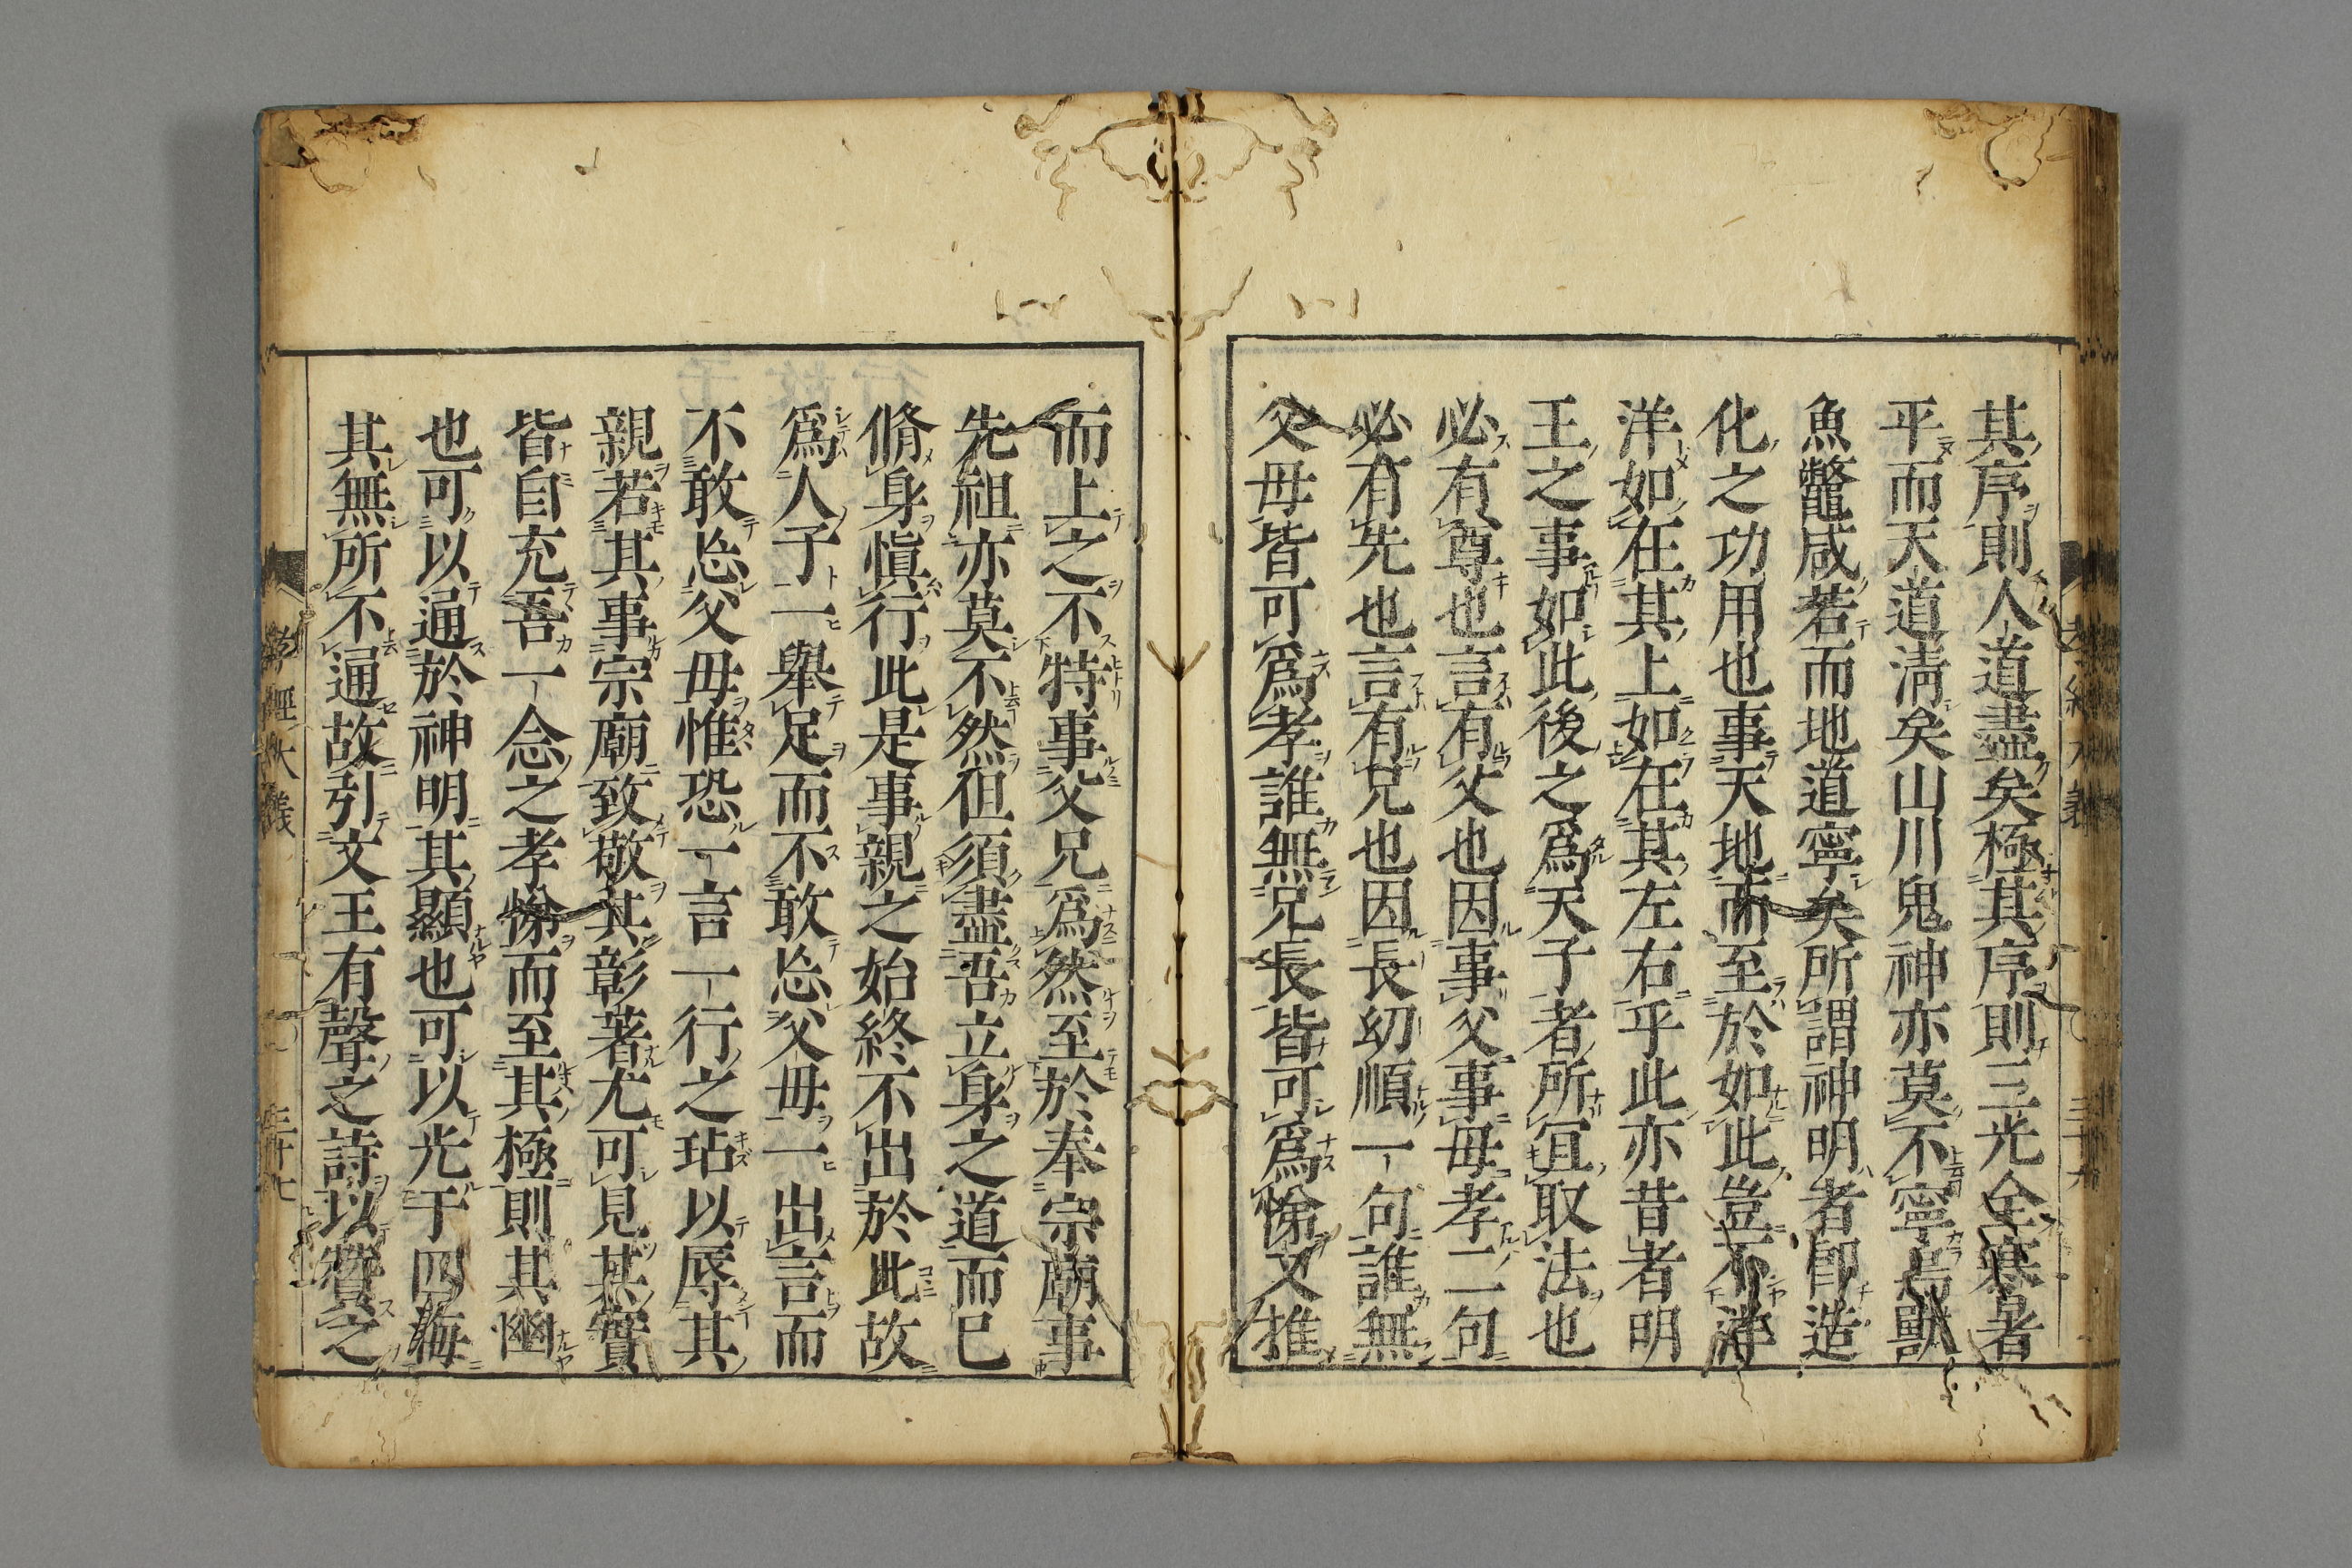 其序則人道盡矣極其序則三光全寒暑
平而天道淸矣山川鬼神亦莫不寧鳥獸
魚鼈咸若而地道寧矣所謂神明者卽造
化之功用也事天地而至於如此豈不洋
洋如在其上如在其左右乎此亦昔者明
王之事如此後之爲天子者所冝取法也
必有尊也言有父也因事父事母孝二句
必有先也言有兄也因長幼順一句誰無
父母皆可爲孝誰無兄長皆可爲悌又推
而上之不特事父兄爲然至於奉宗廟事
先祖亦莫不然但須盡吾立身之道而已
脩身愼行此是事親之始終不出於此故
爲人子一舉足而不敢忘父母一出言而
不敢忘父母惟恐一言一行之玷以辱其
親若其事宗廟致敬其彰著尤可見其實
皆自充吾一念之孝悌而至其極則其幽
也可以通於神明其顯也可以光于四海
其無所不通故引文王有聲之詩以贊之
孝經大義
三十七